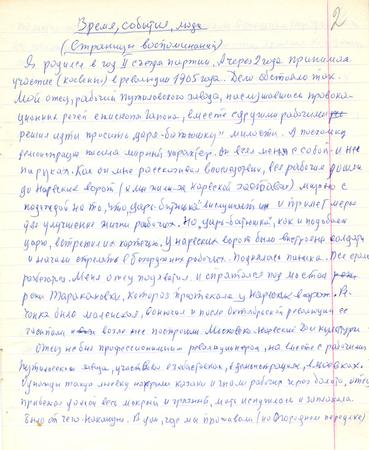 2
Время, события, люди
(Страницы воспоминаний)
Я родился в год II съезда партии. А через 2 года принимал
участие (косвенно) в революции 1905 года. Дело обстояло так.
Мой отец, рабочий Путиловского завода, наслушавшись провока-
ционных речей епископа Гапона, вместе с другими рабочими
решил идти просить царя-батюшку милости. А поскольку
демонстрация носила мирный характер, он взял меня с собой и нес
на руках. Как он мне рассказывал впоследствии, все рабочие дошли
до Нарвских ворот (или за Нарвской заставой) мирно с
надеждой на то, что "царь-батюшка" выслушает их и примет меры
для улучшения жизни рабочих. Но царь-батюшка, как и подобает
царю, встретил их картечью. У Нарвских ворот были выстроены солдаты
и начали стрелять в безоружных рабочих. Поднялась паника. Все стали
разбегаться. Меня отец подхватил и спрятался под мостом
реки Таракановки, которая протекала у Нарвских ворот. Ре-
чонка была маленькая, вонючая и после Октябрьской революции ее
засыпали возле нее построили Московско-Нарвский Дом культуры
Отец не был профессиональным революционером, но вместе с рабочими
Путиловского завода, участвовал в забастовках, в демонстрациях, в маевках.
Однажды такую маевку накрыли казаки и гнали рабочих через болото, отец
прибежал домой весь мокрый и грязный, мать испугалась и заплакала.
Было от чего плакать. В дом, где мы проживали (по Огородному переулку)